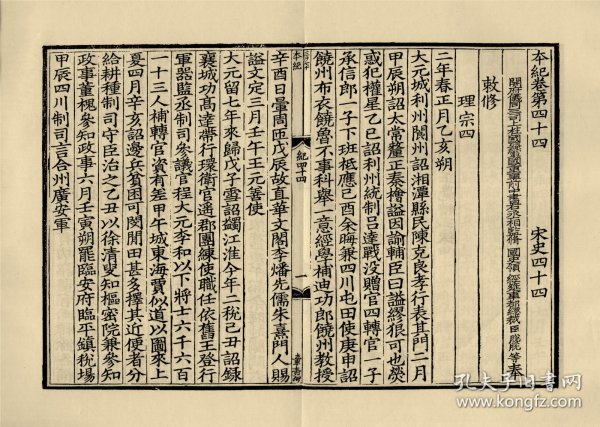 本紀卷第四十四　宋史四十四
開府儀同三司上柱國錄軍國重事前中書右丞相監修國史領經筵事都總裁臣脫脫等奉
敕修
理宗四
二年春正月乙亥朔
大元城利州閬州詔湘潭縣民陳克良孝行表其門二月
甲辰朔詔太常釐正秦檜謚因諭輔臣曰謚繆狠可也熒
惑犯權星乙巳詔利州統制呂達戰沒贈官四轉官一子
承信郎一子下班祗應己酉余晦兼四川屯田使庚申詔
饒州布衣饒魯不事科舉一意經學補迪功郎饒州教授
本紀
紀四十四
一
辛酉日暈周匝戊辰故直華文閣李燔先儒朱熹門人賜
謚文定三月壬午王元善使
大元留七年來歸戊子雪詔蠲江淮今年二稅己丑詔錄
襄城功高達帶行環衛官遥郡團練使職任依舊王登行
軍器監丞制司參議官程大元李和以下將士六千六百
一十三人補轉官資有差甲午城東海賈似道以圖來上
夏四月辛亥詔邊兵貧困可閔閒田甚多擇其近便者分
給耕種制司守臣治之乙丑以徐清叟知樞密院兼參知
政事董槐參知政事六月壬寅朔罷臨安府臨平鎮稅場
甲辰四川制司言合州廣安軍
孔夫子旧书网
www.kongfz.com